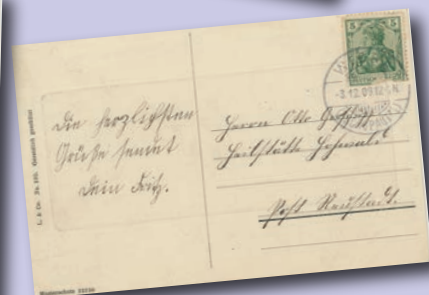 L. & Co. No. 105. Gesetzlich geschützt
Die herzlichsten
Grüße sendet
Dein Fritz.
5 5
W
-3.12.09.12-1 N.
Herrn Otto
Heilstätte Hohwald
Post Neustadt.